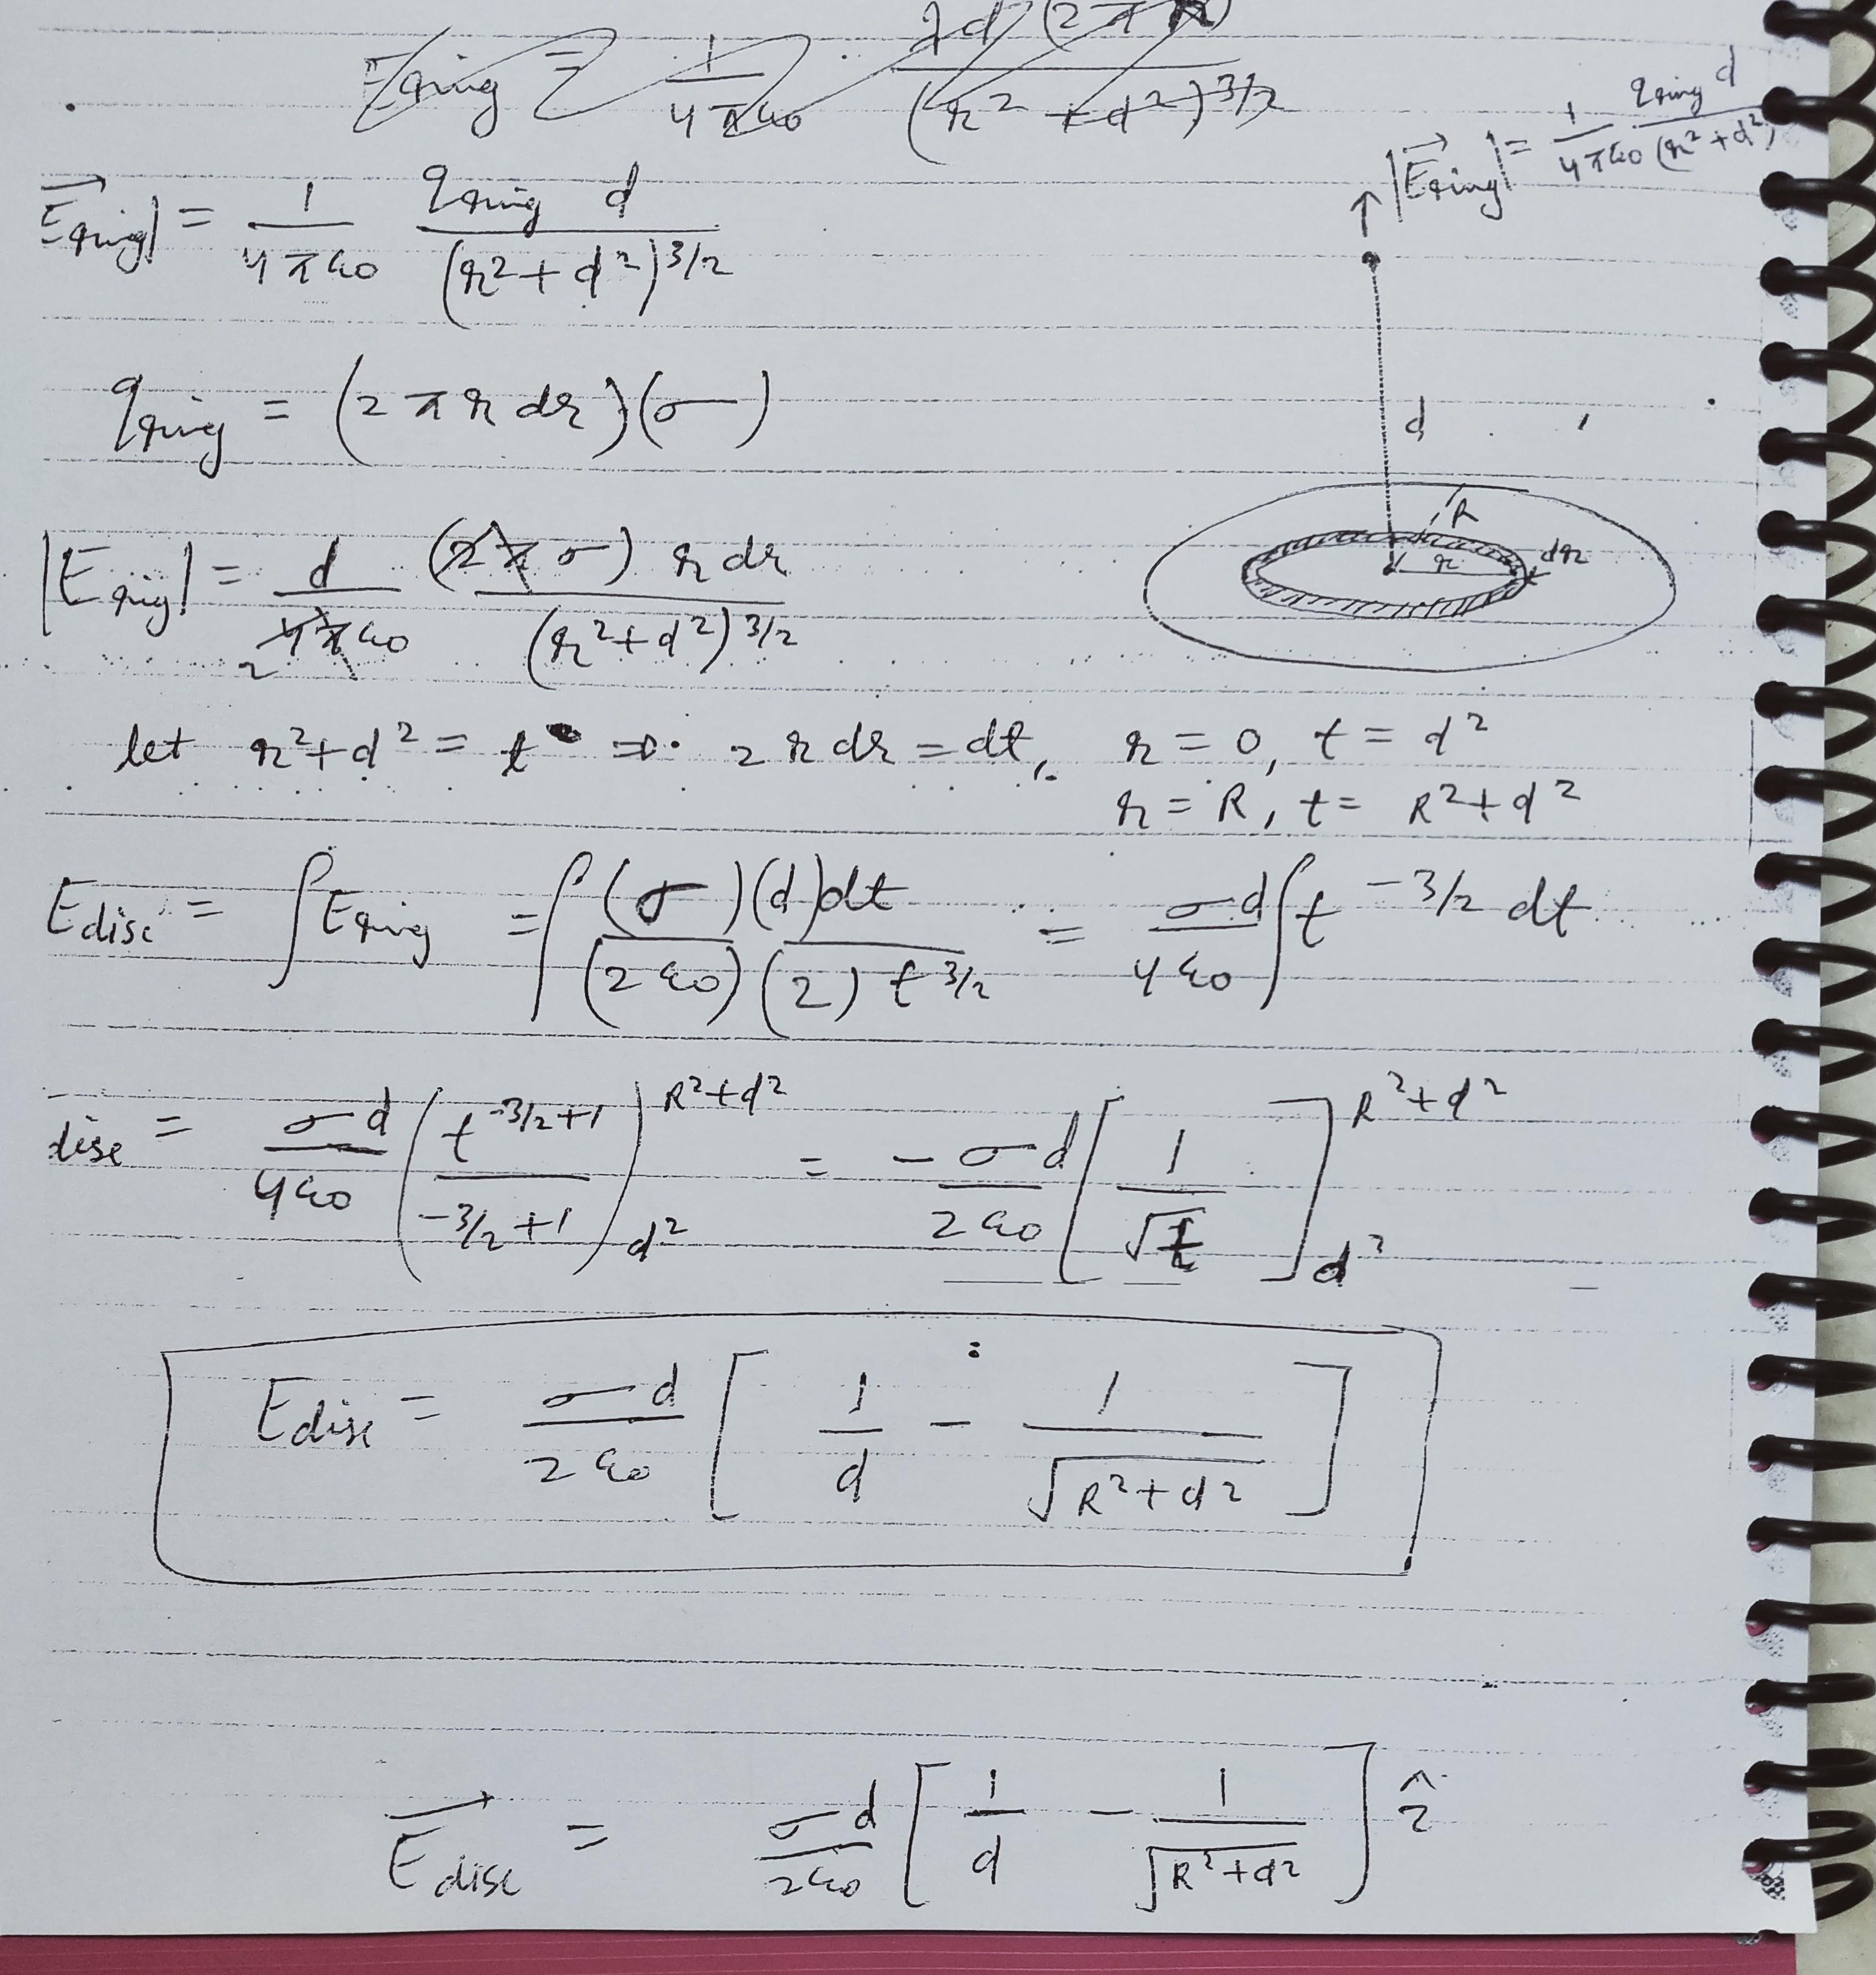 E⃗ring| = 1/4πε₀ · qring d/(r² + d²)^3/2
|E⃗ring| = 1/4πε₀ qring d/(r² + d²)
qring = (2πr dr)(σ)
d
R
r
dr
|Ering| = d/(2 4πε₀) (2πσ) r dr/(r² + d²)^3/2
let r² + d² = t ⇒ 2r dr = dt, r = 0, t = d²
r = R, t = R² + d²
Edisc = ∫Ering = ∫(σ)(d)dt/(2ε₀)(2) t^3/2 = σd/4ε₀ ∫t^-3/2 dt
disc = σd/4ε₀ (t^-3/2+1/-3/2+1)_d²^R²+d² = -σd/2ε₀ [1/√t]_d²^R²+d²
Edisc = σd/2ε₀ [1/d - 1/√R²+d²]
E⃗disc = σd/2ε₀ [1/d - 1/√R²+d²] ẑ